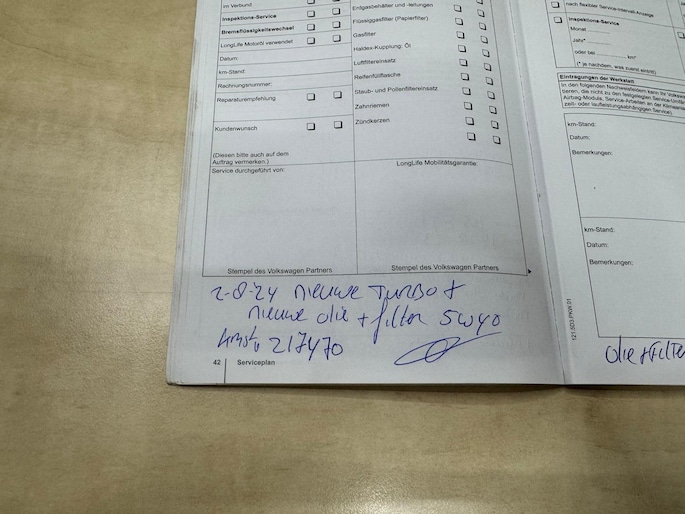 im Verbund
Inspektions-Service
Bremsflüssigkeitswechsel
LongLife Motoröl verwendet
Datum:
km-Stand:
Rechnungsnummer:
Reparaturempfehlung
Kundenwunsch
(Diesen bitte auch auf dem
Auftrag vermerken.)
Service durchgeführt von:
Stempel des Volkswagen Partners
Erdgasbehälter und -leitungen
Flüssiggasfilter (Papierfilter)
Gasfilter
Haldex-Kupplung: Öl
Luftfiltereinsatz
Reifenfüllflasche
Staub- und Pollenfiltereinsatz
Zahnriemen
Zündkerzen
LongLife Mobilitätsgarantie:
Stempel des Volkswagen Partners
2-8-24 nieuwe Turbo +
nieuwe olie + filter 5W40
217470
42 Serviceplan
nach flexibler Service-Intervall-Anzeige
Inspektions-Service
Monat
Jahr*
oder bei km*
(* je nachdem, was zuerst eintritt)
Eintragungen der Werkstatt
In den folgenden Nachweisfeldern kann Ihr Volkswagen
tieren, die nicht zu den festgelegten Service-Umfän
Airbag-Module, Service-Arbeiten an der Klimaanla
zeit- oder laufleistungsabhängigen Service).
km-Stand:
Datum:
Bemerkungen:
km-Stand:
Datum:
Bemerkungen:
121.5G3.PKW.01
olie + Filter